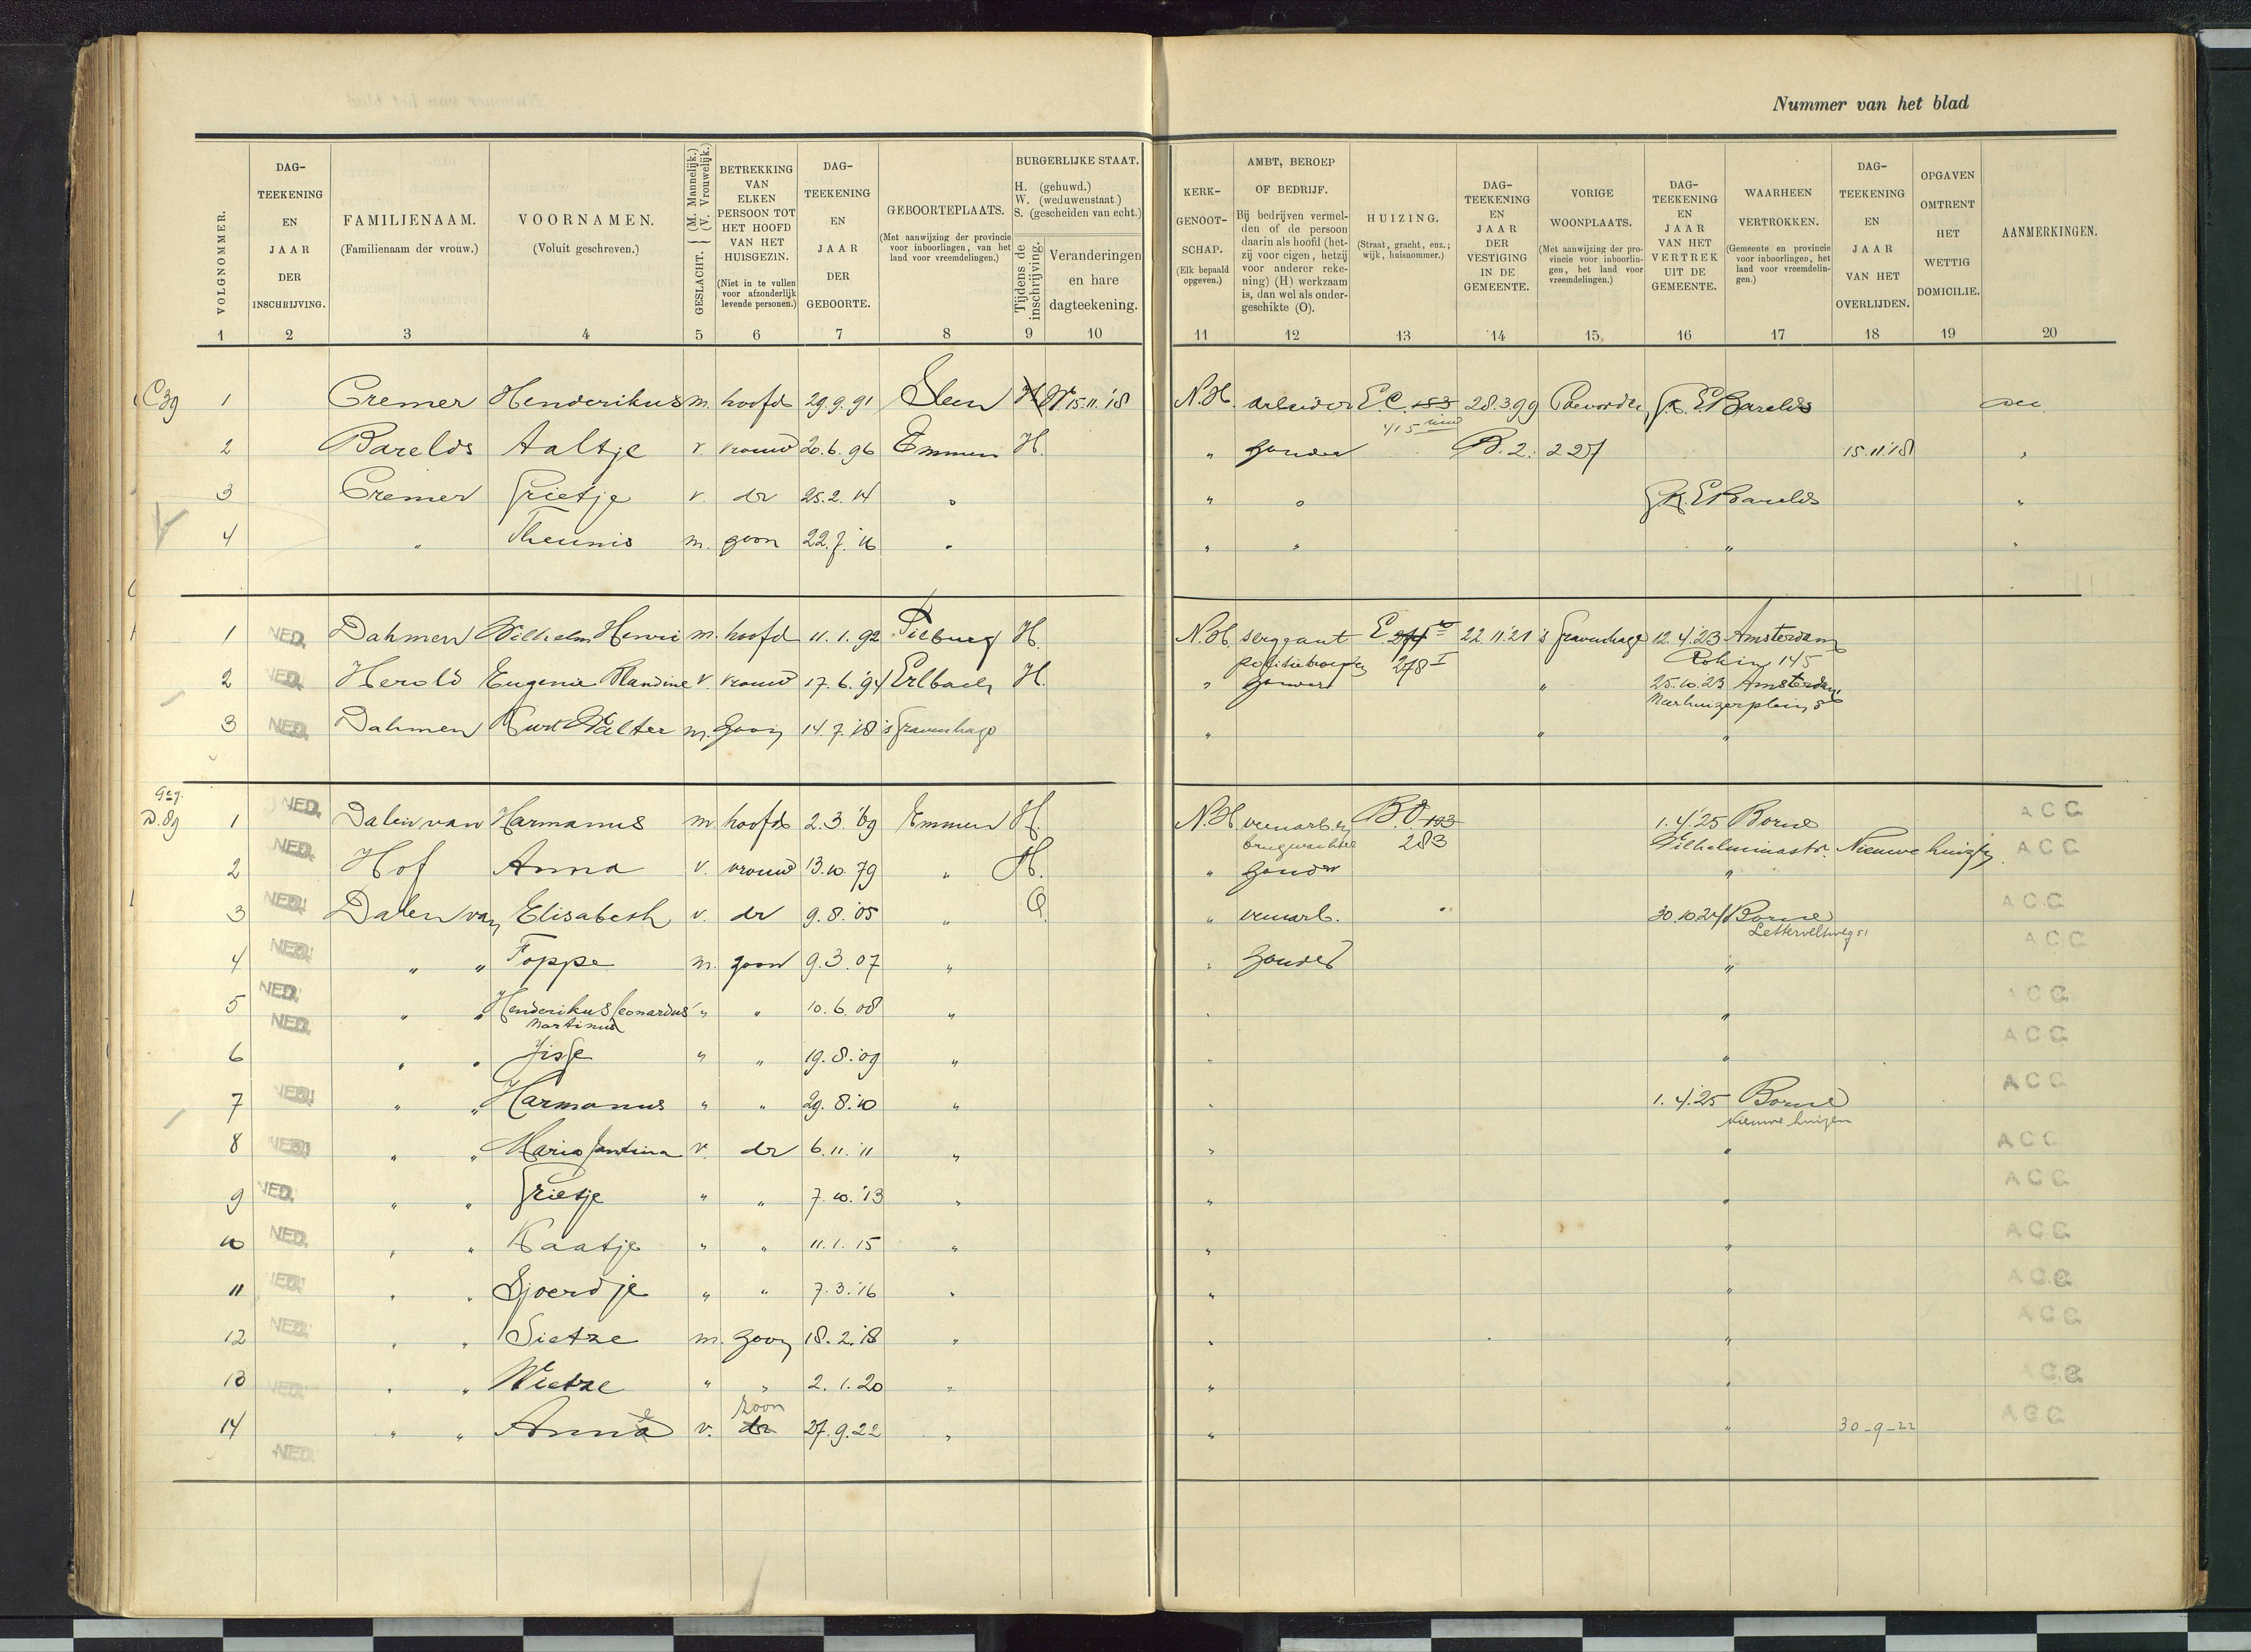 Nummer van het blad
VOLGNOMMER.
DAG-
TEEKENING
EN
JAAR
DER
INSCHRIJVING.
FAMILIENAAM.
(Familienaam der vrouw.)
VOORNAMEN.
(Voluit geschreven.)
GESLACHT. (M. Mannelijk.) (V. Vrouwelijk.)
BETREKKING
VAN
ELKEN
PERSOON TOT
HET HOOFD
VAN HET
HUISGEZIN.
(Niet in te vullen
voor afzonderlijk
levende personen.)
DAG-
TEEKENING
EN
JAAR
DER
GEBOORTE.
GEBOORTEPLAATS.
(Met aanwijzing der provincie
voor inboorlingen, van het
land voor vreemdelingen.)
BURGERLIJKE STAAT.
H. (gehuwd.)
W. (weduwenstaat.)
S. (gescheiden van echt.)
Tijdens de
inschrijving.
Veranderingen
en hare
dagteekening.
KERK-
GENOOT-
SCHAP.
(Elk bepaald
opgeven.)
AMBT, BEROEP
OF BEDRIJF.
Bij bedrijven vermel-
den of de persoon
daarin als hoofd (het-
zij voor eigen, hetzij
voor anderer reke-
ning) (H) werkzaam
is, dan wel als onder-
geschikte (O).
HUIZING.
(Straat, gracht, enz.;
wijk, huisnommer.)
DAG-
TEEKENING
EN
JAAR
DER
VESTIGING
IN DE
GEMEENTE.
VORIGE
WOONPLAATS.
(Met aanwijzing der pro-
vincie voor inboorlin-
gen, het land voor
vreemdelingen.)
DAG-
TEEKENING
EN
JAAR
VAN HET
VERTREK
UIT DE
GEMEENTE.
WAARHEEN
VERTROKKEN.
(Gemeente en provincie
voor inboorlingen, het
land voor vreemdelin-
gen.)
DAG-
TEEKENING
EN
JAAR
VAN HET
OVERLIJDEN.
OPGAVEN
OMTRENT
HET
WETTIG
DOMICILIE.
AANMERKINGEN.
1 2 3 4 5 6 7 8 9 10 11 12 13 14 15 16 17 18 19 20
C39 1 Cremer Henderikus m. hoofd 29.9.91 Sleen H W. 15.11.'18 N.H. arbeider E.C. 183 28.3.99 G.K. E Barelds
415
2 Barelds Aaltje v. vrouw 20.6.96 Emmen H. " zonder B.2. 227 15.11.'18 "
3 Cremer Grietje v. dr 25.2.14 " " " G.K. E Barelds "
4 " Theunis m. zoon 22.7.16 " " " " "
1 NED. Dahmen Wilhelm Henri m. hoofd 11.1.92 Tilburg H. N.H. sergeant E. 22.11.'21 's Gravenhage 12.4.'23 Amsterdam
278 I Rokin 145
2 NED. Herold Eugenie Blandine v. vrouw 17.6.'94 Erlbach H. " zonder " 25.10.23 Amsterdam
Merhuizerplein 8
3 NED. Dahmen Kurt Walter m. zoon 14.7.'18 's Gravenhage " " "
Geg.
D.89 1 NED. Dalen van Harmanus m. hoofd 2.3.'69 Emmen H. N.H. veenarb. en B.O. 193 1.4.'25 Borne A C G
brugwachter 283 Wilhelminastr. Nieuwe huizen
2 NED. Hof Anna v. vrouw 13.10.79 " H. " zonder " A C G
3 NED. Dalen van Elisabeth v. dr 9.8.'05 " O. " veenarb. " 30.10.24 Borne A C G
Letterveldweg 51
4 NED. " " Foppe m. zoon 9.3.07 " " zonder " A C G
5 NED. " " Henderikus Leonardus " " 10.6.08 " " " A C G
Martinus
6 NED. " " Jisse " " 19.8.'09 " " " A C G
7 NED. " " Harmanus " " 29.8.'10 " " 1.4.'25 Borne A C G
Nieuwe huizen
8 NED. " " Maria Jantina v. dr 6.11.'11 " " " A C G
9 NED. " " Grietje " " 7.10.'13 " " " A C G
10 NED. " " Kaatje " " 11.1.15 " " " A C G
11 NED. " " Sjoerdje " " 7.3.'16 " " " A C G
12 NED. " " Sietze m. zoon 18.2.'18 " " " A C G
13 NED. " " Wietze " " 2.1.20 " " " A C G
zoon
14 NED. " " Anna v. dr 27.9.22 " " " 30-9-22 A C G